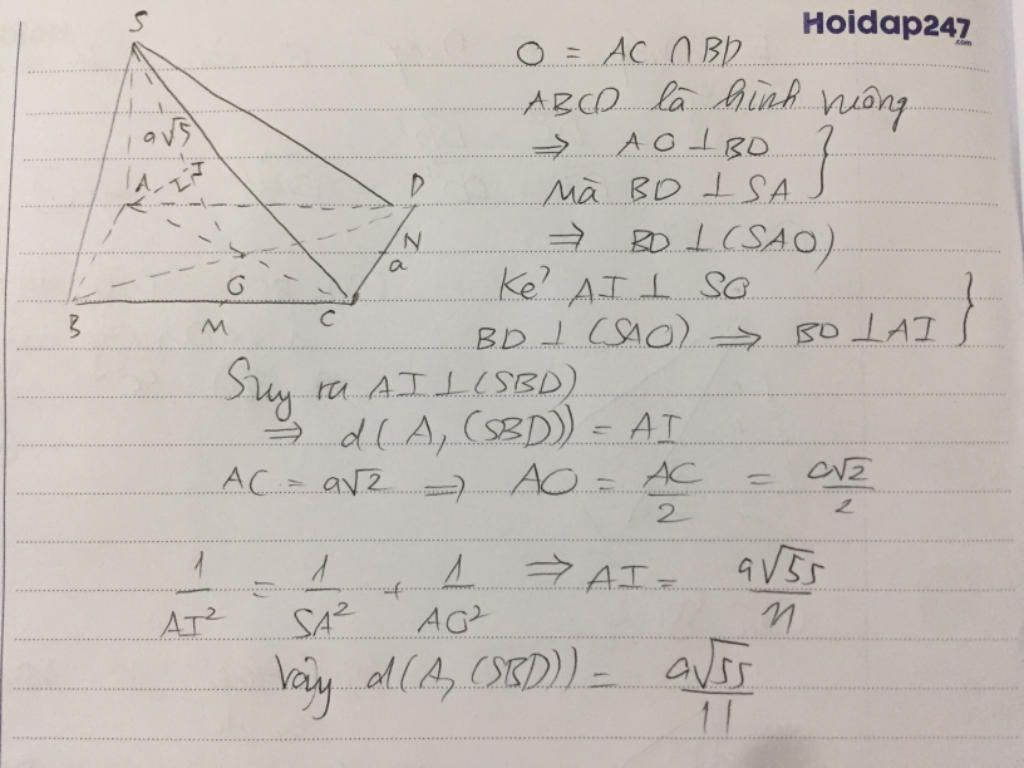 Hoidap247
.com
S
a√5
A I J
D
N
a
O
B
M
C
O = AC ∩ BD
ABCD là hình vuông
⇒ AO ⊥ BD
mà BD ⊥ SA
⇒ BD ⊥ (SAO)
Kẻ AI ⊥ SO
BD ⊥ (SAO) ⇒ BD ⊥ AI
Suy ra AI ⊥ (SBD)
⇒ d(A, (SBD)) = AI
AC = a√2 ⇒ AO = AC/2 = a√2/2
1/AI² = 1/SA² + 1/AO² ⇒ AI = a√55/11
Vậy d(A, (SBD)) = a√55/11